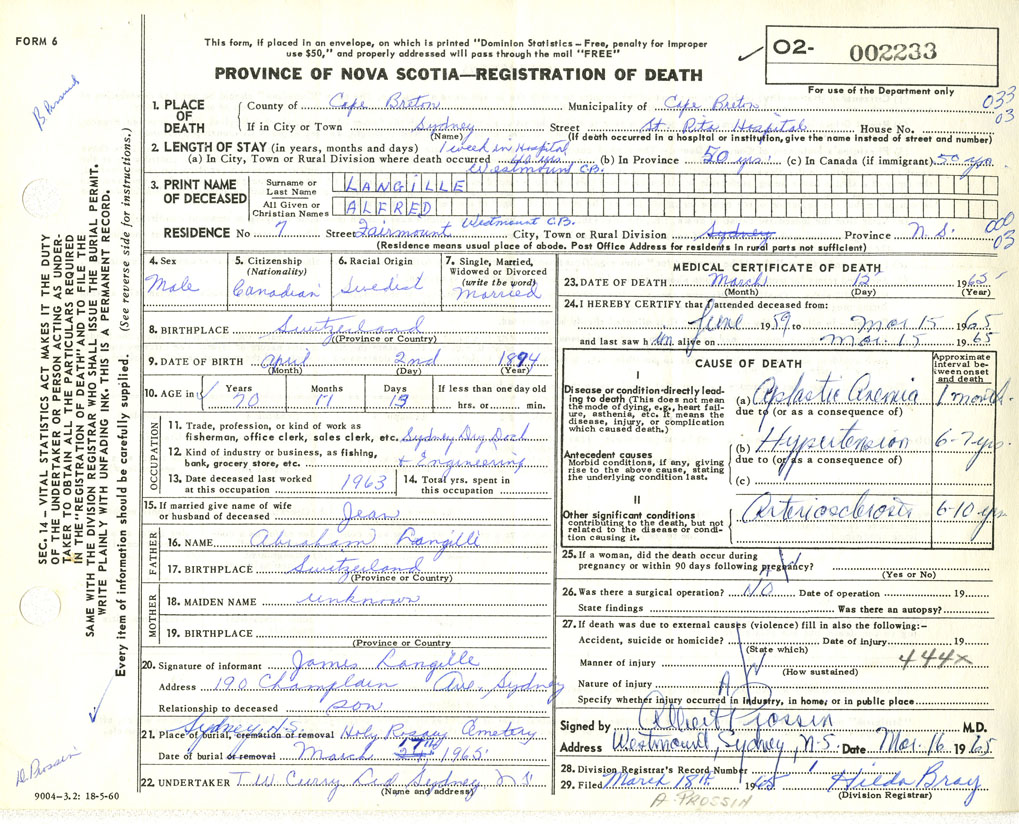 FORM 6
This form, if placed in an envelope, on which is printed "Dominion Statistics – Free, penalty for improper
use $50," and properly addressed will pass through the mail "FREE"
PROVINCE OF NOVA SCOTIA—REGISTRATION OF DEATH
02- 002233
For use of the Department only
033
03
1. PLACE OF DEATH County of Cape Breton Municipality of Cape Breton
If in City or Town Sydney Street St. Rita Hospital House No.
(Name) (If death occurred in a hospital or institution, give the name instead of street and number)
2. LENGTH OF STAY (in years, months and days) 1 week in Hospital
(a) In City, Town or Rural Division where death occurred 40 yrs (b) In Province 50 yrs. (c) In Canada (if immigrant) 50 yrs.
Westmount C.B.
3. PRINT NAME OF DECEASED Surname or Last Name LANGILLE
All Given or Christian Names ALFRED
RESIDENCE No 7 Street Fairmount Westmount C.B. City, Town or Rural Division Sydney Province N.S.
000
03
(Residence means usual place of abode. Post Office Address for residents in rural parts not sufficient)
4. Sex Male
5. Citizenship (Nationality) Canadian
6. Racial Origin Swedist
7. Single, Married, Widowed or Divorced (write the word) Married
8. BIRTHPLACE Switzerland
(Province or Country)
9. DATE OF BIRTH April 2nd 1894
(Month) (Day) (Year)
10. AGE in Years 70 Months 11 Days 13 If less than one day old hrs. or min.
OCCUPATION
11. Trade, profession, or kind of work as
fisherman, office clerk, sales clerk, etc. Sydney Dry Dock
12. Kind of industry or business, as fishing,
bank, grocery store, etc. + Engineering
13. Date deceased last worked
at this occupation 1963
14. Total yrs. spent in
this occupation
15. If married give name of wife
or husband of deceased Jean
FATHER
16. NAME Abraham Langille
17. BIRTHPLACE Switzerland
(Province or Country)
MOTHER
18. MAIDEN NAME unknown
19. BIRTHPLACE
(Province or Country)
20. Signature of informant James Langille
Address 190 Champlain Ave, Sydney
Relationship to deceased son
Sydney, N.S.
21. Place of burial, cremation or removal Holy Rosary Cemetary
Date of burial or removal March 17th 1965
22. UNDERTAKER T.W. Curry Ltd Sydney N.S.
(Name and address)
MEDICAL CERTIFICATE OF DEATH
23. DATE OF DEATH March 15 1965
(Month) (Day) (Year)
24. I HEREBY CERTIFY that I attended deceased from:
June 1959 to Mar 15 1965
and last saw him alive on Mar. 15 1965
CAUSE OF DEATH
Approximate interval between onset and death
I
Disease or condition directly leading
to death (This does not mean
the mode of dying, e.g., heart failure,
asthenia, etc. It means the
disease, injury, or complication
which caused death.)
(a) Aplastic Anemia 1 month.
due to (or as a consequence of)
Antecedent causes
Morbid conditions, if any, giving
rise to the above cause, stating
the underlying condition last.
(b) Hypertension 6-7 yrs.
due to (or as a consequence of)
(c)
II
Other significant conditions
contributing to the death, but not
related to the disease or condition
causing it.
Arteriosclerosis 6-10 yrs
25. If a woman, did the death occur during
pregnancy or within 90 days following pregnancy?
(Yes or No)
26. Was there a surgical operation? NO Date of operation 19
State findings Was there an autopsy?
27. If death was due to external causes (violence) fill in also the following:-
Accident, suicide or homicide? Date of injury 19
(State which)
444x
Manner of injury
(How sustained)
Nature of injury
Specify whether injury occurred in industry, in home, or in public place
Signed by Albert Prossin M.D.
Address Westmount, Sydney, N.S. Date Mar. 16 1965
28. Division Registrar's Record Number 1
29. Filed March 18th 1965 Hilda Bray
(Division Registrar)
A PROSSIN
9004-3.2: 18-5-60
SEC. 14 – VITAL STATISTICS ACT MAKES IT THE DUTY
OF THE UNDERTAKER OR PERSON ACTING AS UNDERTAKER
TO OBTAIN ALL THE PARTICULARS REQUIRED
IN THE "REGISTRATION OF DEATH" AND TO FILE THE
SAME WITH THE DIVISION REGISTRAR WHO SHALL ISSUE THE BURIAL PERMIT.
WRITE PLAINLY WITH UNFADING INK. THIS IS A PERMANENT RECORD.
Every item of information should be carefully supplied. (See reverse side for instructions.)